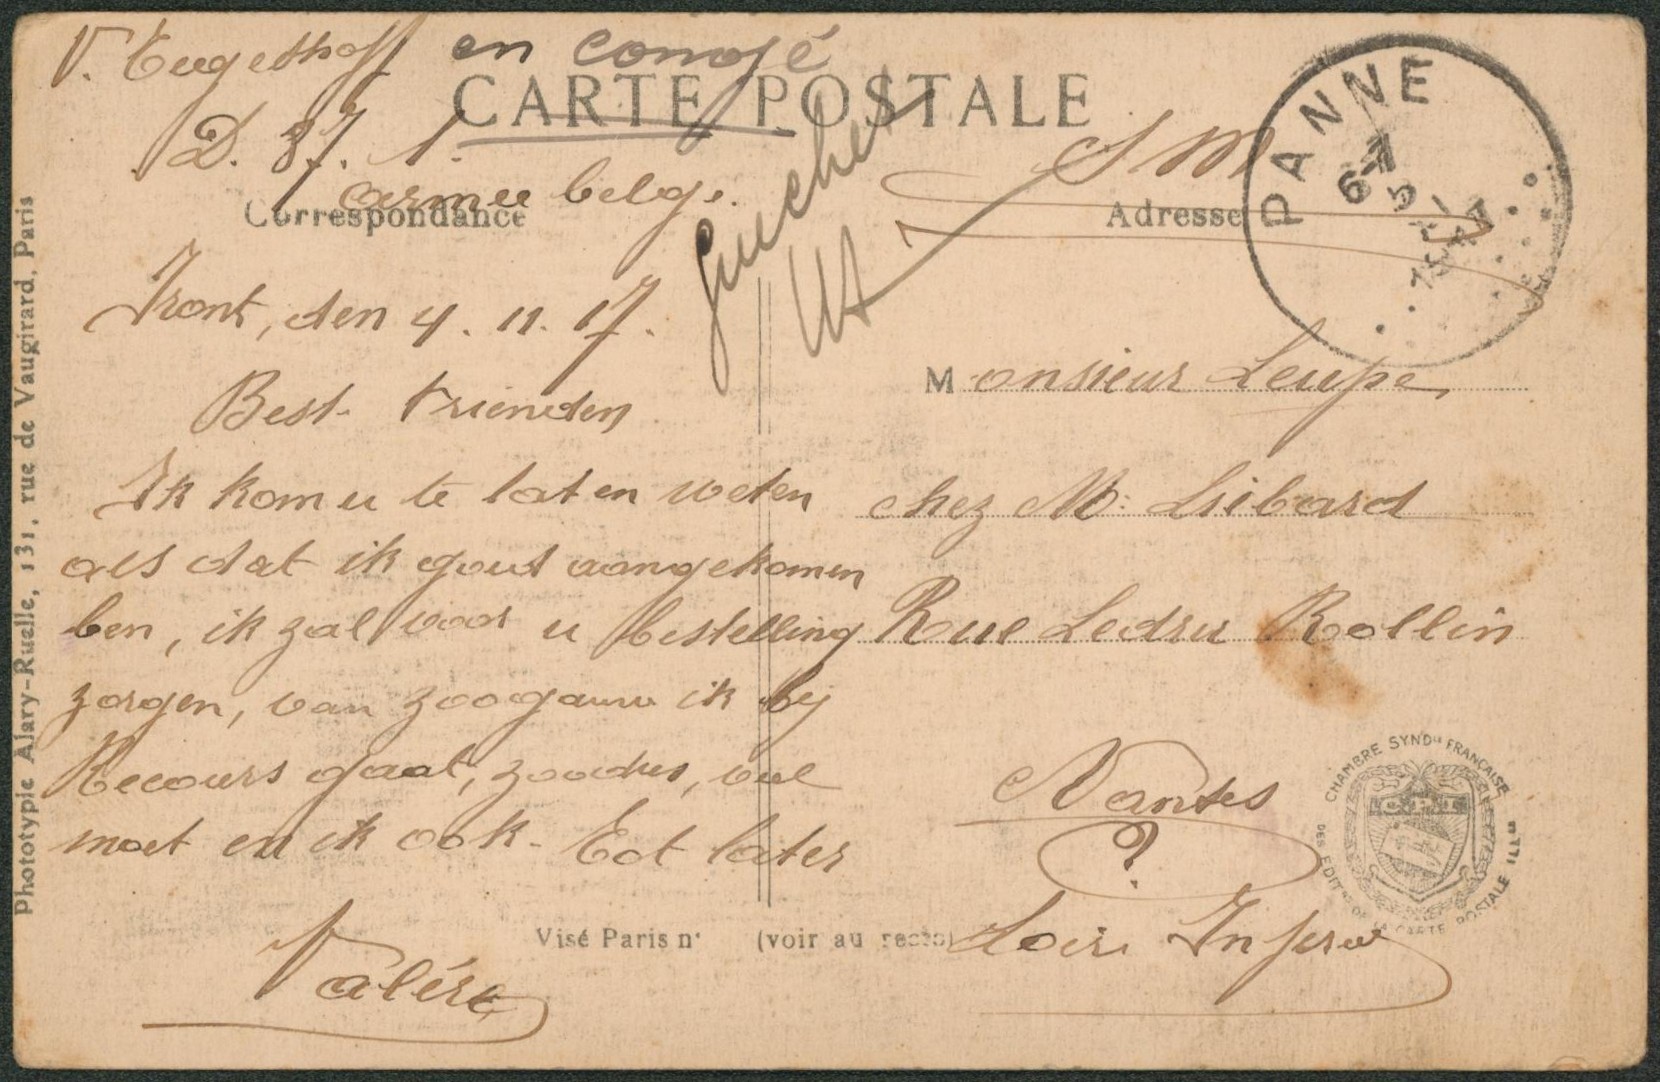 V. Engelshoff en congé
CARTE POSTALE
D. 87. 1.
armee belge.
S M
Correspondance
Adresse
PANNE
Front, den 4. 11. 17.
Best. Vrienden
Ik kom u te laten weten
als dat ik goed aangekomen
ben, ik zal voor u bestelling
zorgen, van zoogauw ik bij
Recours gaat, zoodus, vul
moet en ik ook. Tot later
Valére
Monsieur Leupe
chez M. Libard
Rue Ledru Rollin
Nantes
?
Loire Inferie
Visé Paris n° (voir au recto)
Phototypie Alary-Ruelle, 131, rue de Vaugirard, Paris
CHAMBRE SYNDle FRANÇAISE
DES EDITRS DE LA CARTE POSTALE ILLTÉE
C.P.I